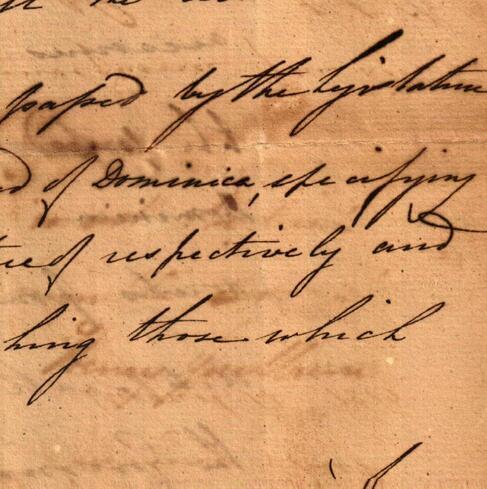 the
passed by the Legislature
of Dominica, specifying
respectively and
hing those which